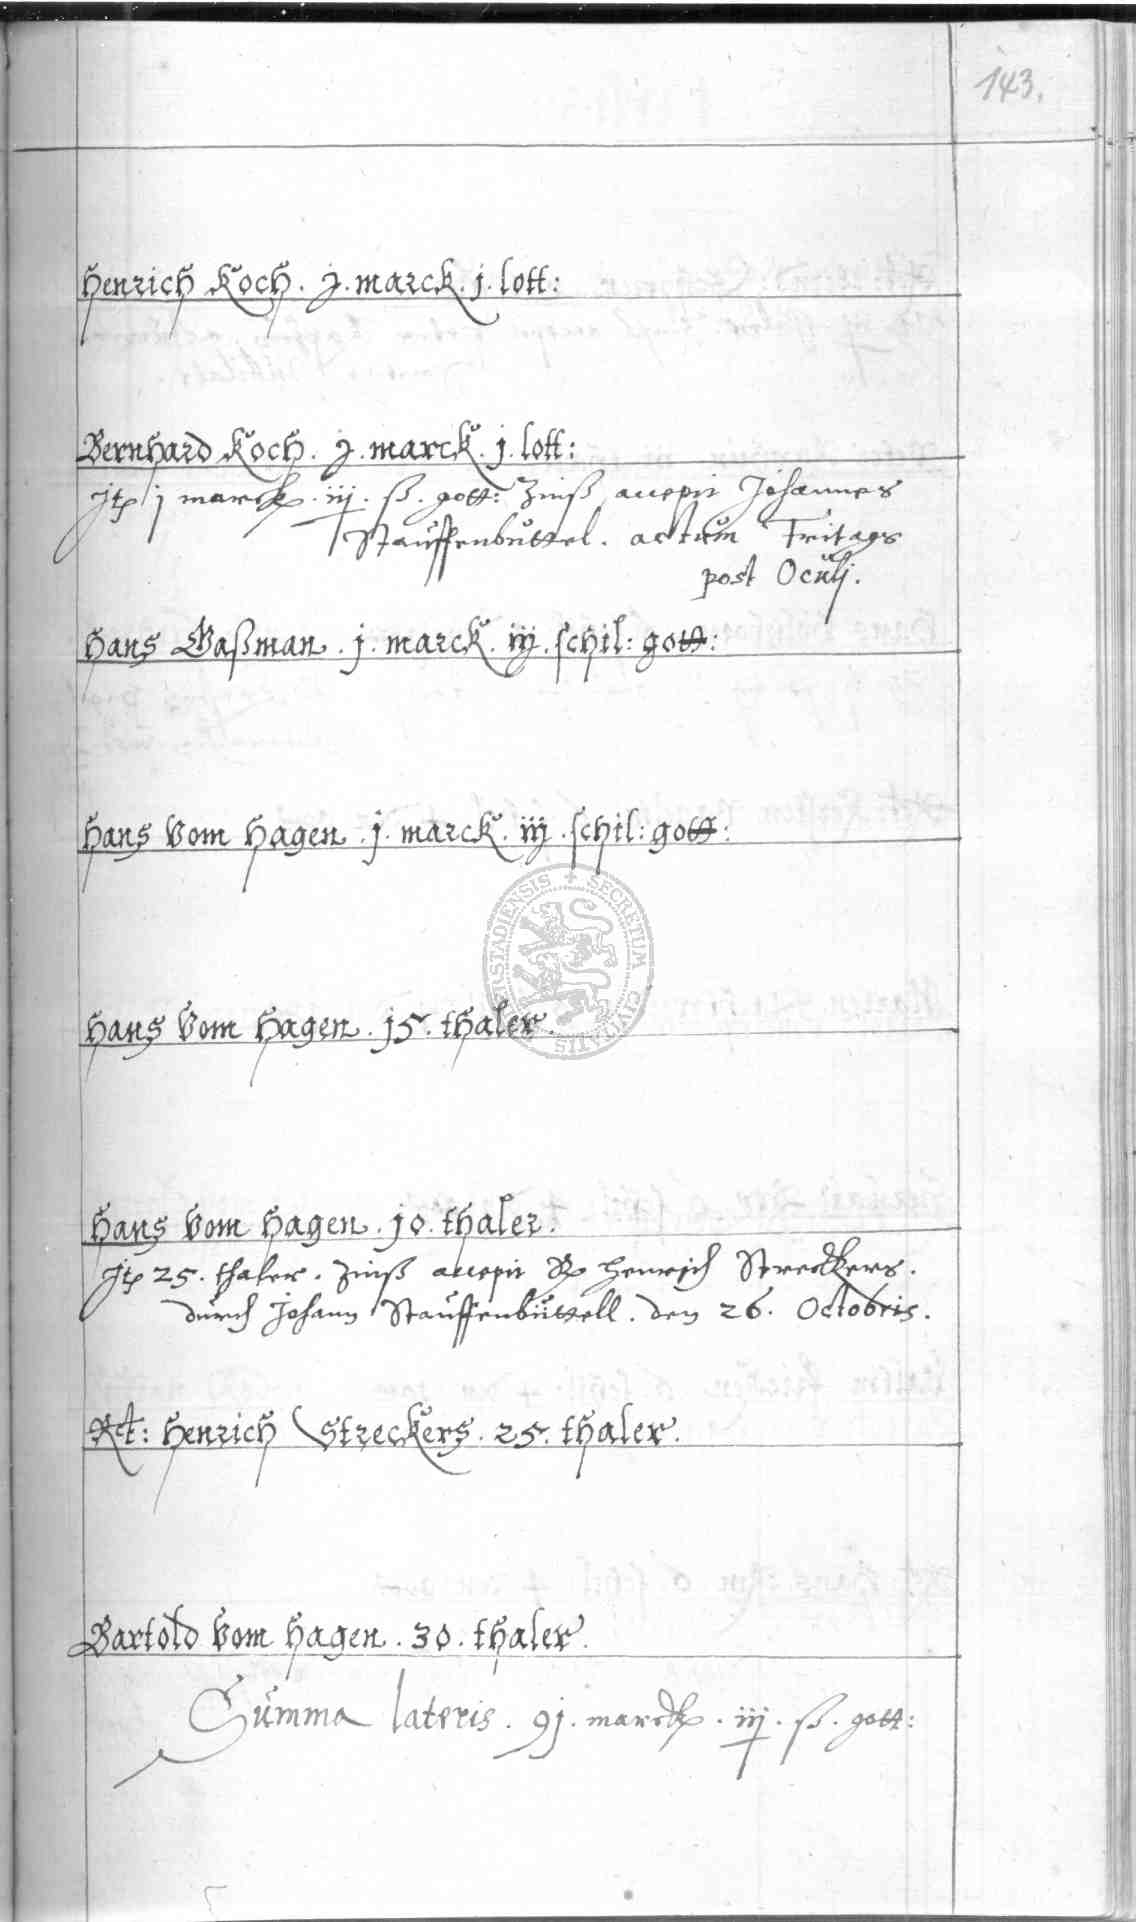 143.
Henrich Koch. j. marck. j. lott:
Bernhard Koch. j. marck. j. lott:
Jtem j marck. iij. ß. gott: Zinß accepit Johannes
Stauffenbuttel. actum Fritags
post Oculj.
Hans Waßman. j. marck. iij. schil: gott:
Hans Vom Hagen. j. marck. iij. schil: gott:
Hans Vom Hagen. j5. thaler.
Hans Vom Hagen. j0. thaler.
Jtem 25. thaler. Zinß accepit Henrich Streckers.
durch Johann Stauffenbüttell. den 26. Octobris.
Henrich Streckers. 25. thaler.
Bartold Vom Hagen. 30. thaler.
Summa lateris. 9j. marck. iij. ß. gott:
SECRETUM CIVITATIS